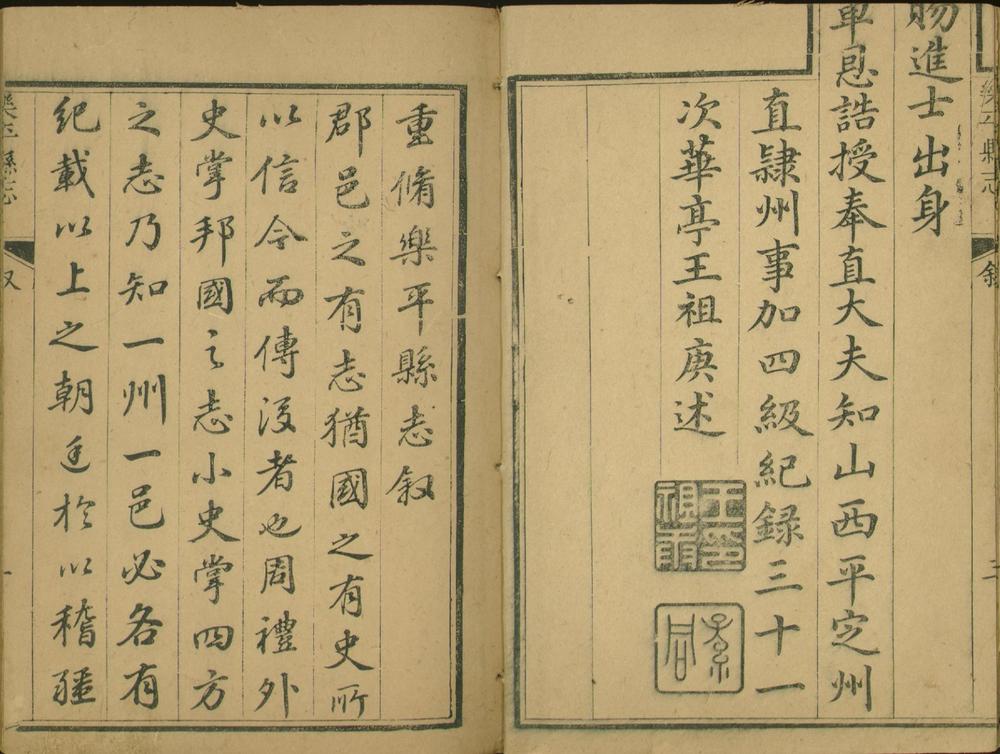 賜進士出身
覃恩誥授奉直大夫知山西平定州
直隸州事加四級紀錄三十一
次華亭王祖庚述
樂平縣志
重脩樂平縣志叙
郡邑之有志猶國之有史所
以信今而傳後者也周禮外
史掌邦國之志小史掌四方
之志乃知一州一邑必各有
紀載以上之朝廷於以稽疆
樂平縣志
叙
一